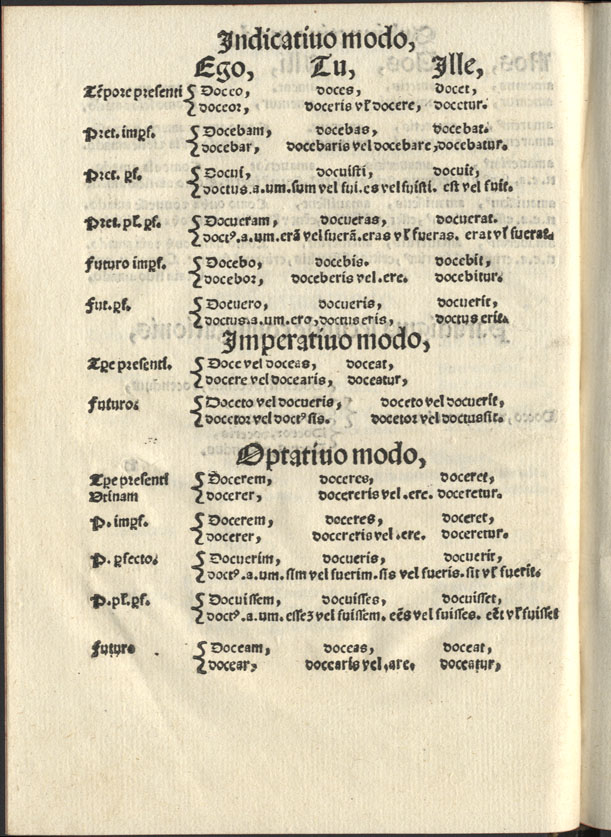 Indicatiuo modo,
Ego, Tu, Ille,
Tẽpore presenti { Doceo, doces, docet,
doceor, doceris vľ docere, docetur.
Pret. impf. { Docebam, docebas, docebat.
docebar, docebaris vel docebare, docebatur.
Pret. ꝑf. { Docui, docuisti, docuit,
doctus.a.um.sum vel fui.es vel fuisti. est vel fuit.
Pret. pľ. ꝑf. { Docueram, docueras, docuerat.
doctꝰ.a.um.erã vel fuerã.eras vľ fueras. erat vľ fuerat.
Futuro impf. { Docebo, docebis. docebit,
docebor, doceberis vel.ere. docebitur.
Fut.ꝑf. { Docuero, docueris, docuerit,
doctus.a.um.ero, doctus eris, doctus erit.
Imperatiuo modo,
Tꝑe presenti. { Doce vel doceas, doceat,
docere vel docearis, doceatur,
Futuro. { Doceto vel docueris, doceto vel docuerit,
docetor vel doctꝰ sis. docetor vel doctus sit.
Optatiuo modo,
Tꝑe presenti { Docerem, doceres, doceret,
Utinam docerer, docereris vel.ere. doceretur.
P. impf. { Docerem, doceres, doceret,
docerer, docereris vel.ere. doceretur.
P. ꝑfecto. { Docuerim, docueris, docuerit,
doctꝰ.a.um.sim vel fuerim.sis vel fueris.sit vľ fuerit.
P.pľ.ꝑf. { Docuissem, docuisses, docuisset,
doctꝰ.a.um.esseʒ vel fuissem. eẽs vel fuisses. eẽt vľ fuisset
Futuro { Doceam, doceas, doceat,
docear, docearis vel.are. doceatur,